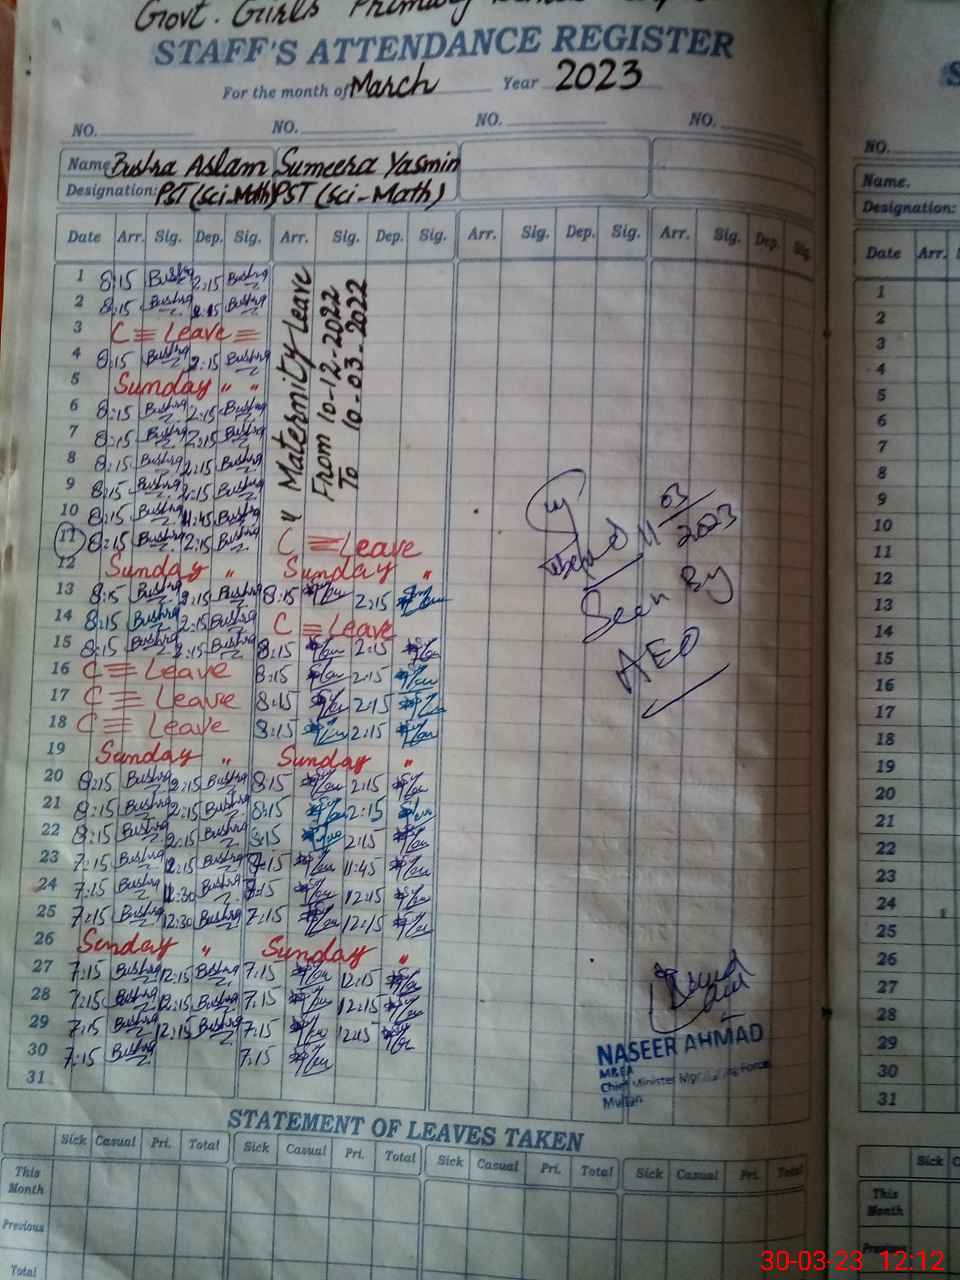 Govt. Girls Primary
STAFF'S ATTENDANCE REGISTER
For the month of March Year 2023
NO. NO. NO. NO.
Name Bushra Aslam Sumeera Yasmin
Designation: PST (Sci-Math) PST (Sci-Math)
Date Arr. Sig. Dep. Sig. Arr. Sig. Dep. Sig. Arr. Sig. Dep. Sig. Arr. Sig. Dep. Sig.
Maternity Leave
From 10-12-2022
To 10-03-2022
1 8:15 Bushra 2:15 Bushra
2 8:15 Bushra Bushra
3 C Leave
4 8:15 Bushra 2:15 Bushra
5 Sunday " "
6 8:15 Bushra 2:15 Bushra
7 8:15 Bushra 2:15 Bushra
8 8:15 Bushra 2:15 Bushra
9 8:15 Bushra 2:15 Bushra
10 8:15 Bushra 11:45 Bushra "
11 8:15 Bushra 2:15 Bushra C Leave
12 Sunday " Sunday "
13 8:15 Bushra 2:15 Bushra 8:15 2:15
14 8:15 Bushra 2:15 Bushra C Leave
15 8:15 Bushra 2:15 Bushra 8:15 2:15
16 C Leave 8:15 2:15
17 C Leave 8:15 2:15
18 C Leave 8:15 2:15
19 Sunday " Sunday "
20 8:15 Bushra 2:15 Bushra 8:15 2:15
21 8:15 Bushra 2:15 Bushra 8:15 2:15
22 8:15 Bushra 2:15 Bushra 8:15 2:15
23 7:15 Bushra 12:15 Bushra 11:45
24 7:15 Bushra Bushra 12:15
25 7:15 Bushra 12:30 Bushra 7:15 12:15
26 Sunday " Sunday "
27 7:15 Bushra 12:15 Bushra 7:15 12:15
28 7:15 Bushra 12:15 Bushra 7:15 12:15
29 7:15 Bushra 12:15 Bushra 7:15 12:15
30 7:15 Bushra 7:15
31
11 03
2023
Seen By
AEO
NASEER AHMAD
M&EA
Chief Minister Force
Multan
STATEMENT OF LEAVES TAKEN
Sick Casual Pri. Total Sick Casual Pri. Total Sick Casual Pri. Total Sick Casual Pri. Total
This Month
Previous
Total
S
NO.
Name.
Designation:
Date Arr.
1
2
3
4
5
6
7
8
9
10
11
12
13
14
15
16
17
18
19
20
21
22
23
24
25
26
27
28
29
30
31
Sick
This Month
Previous
30-03-23 12:12